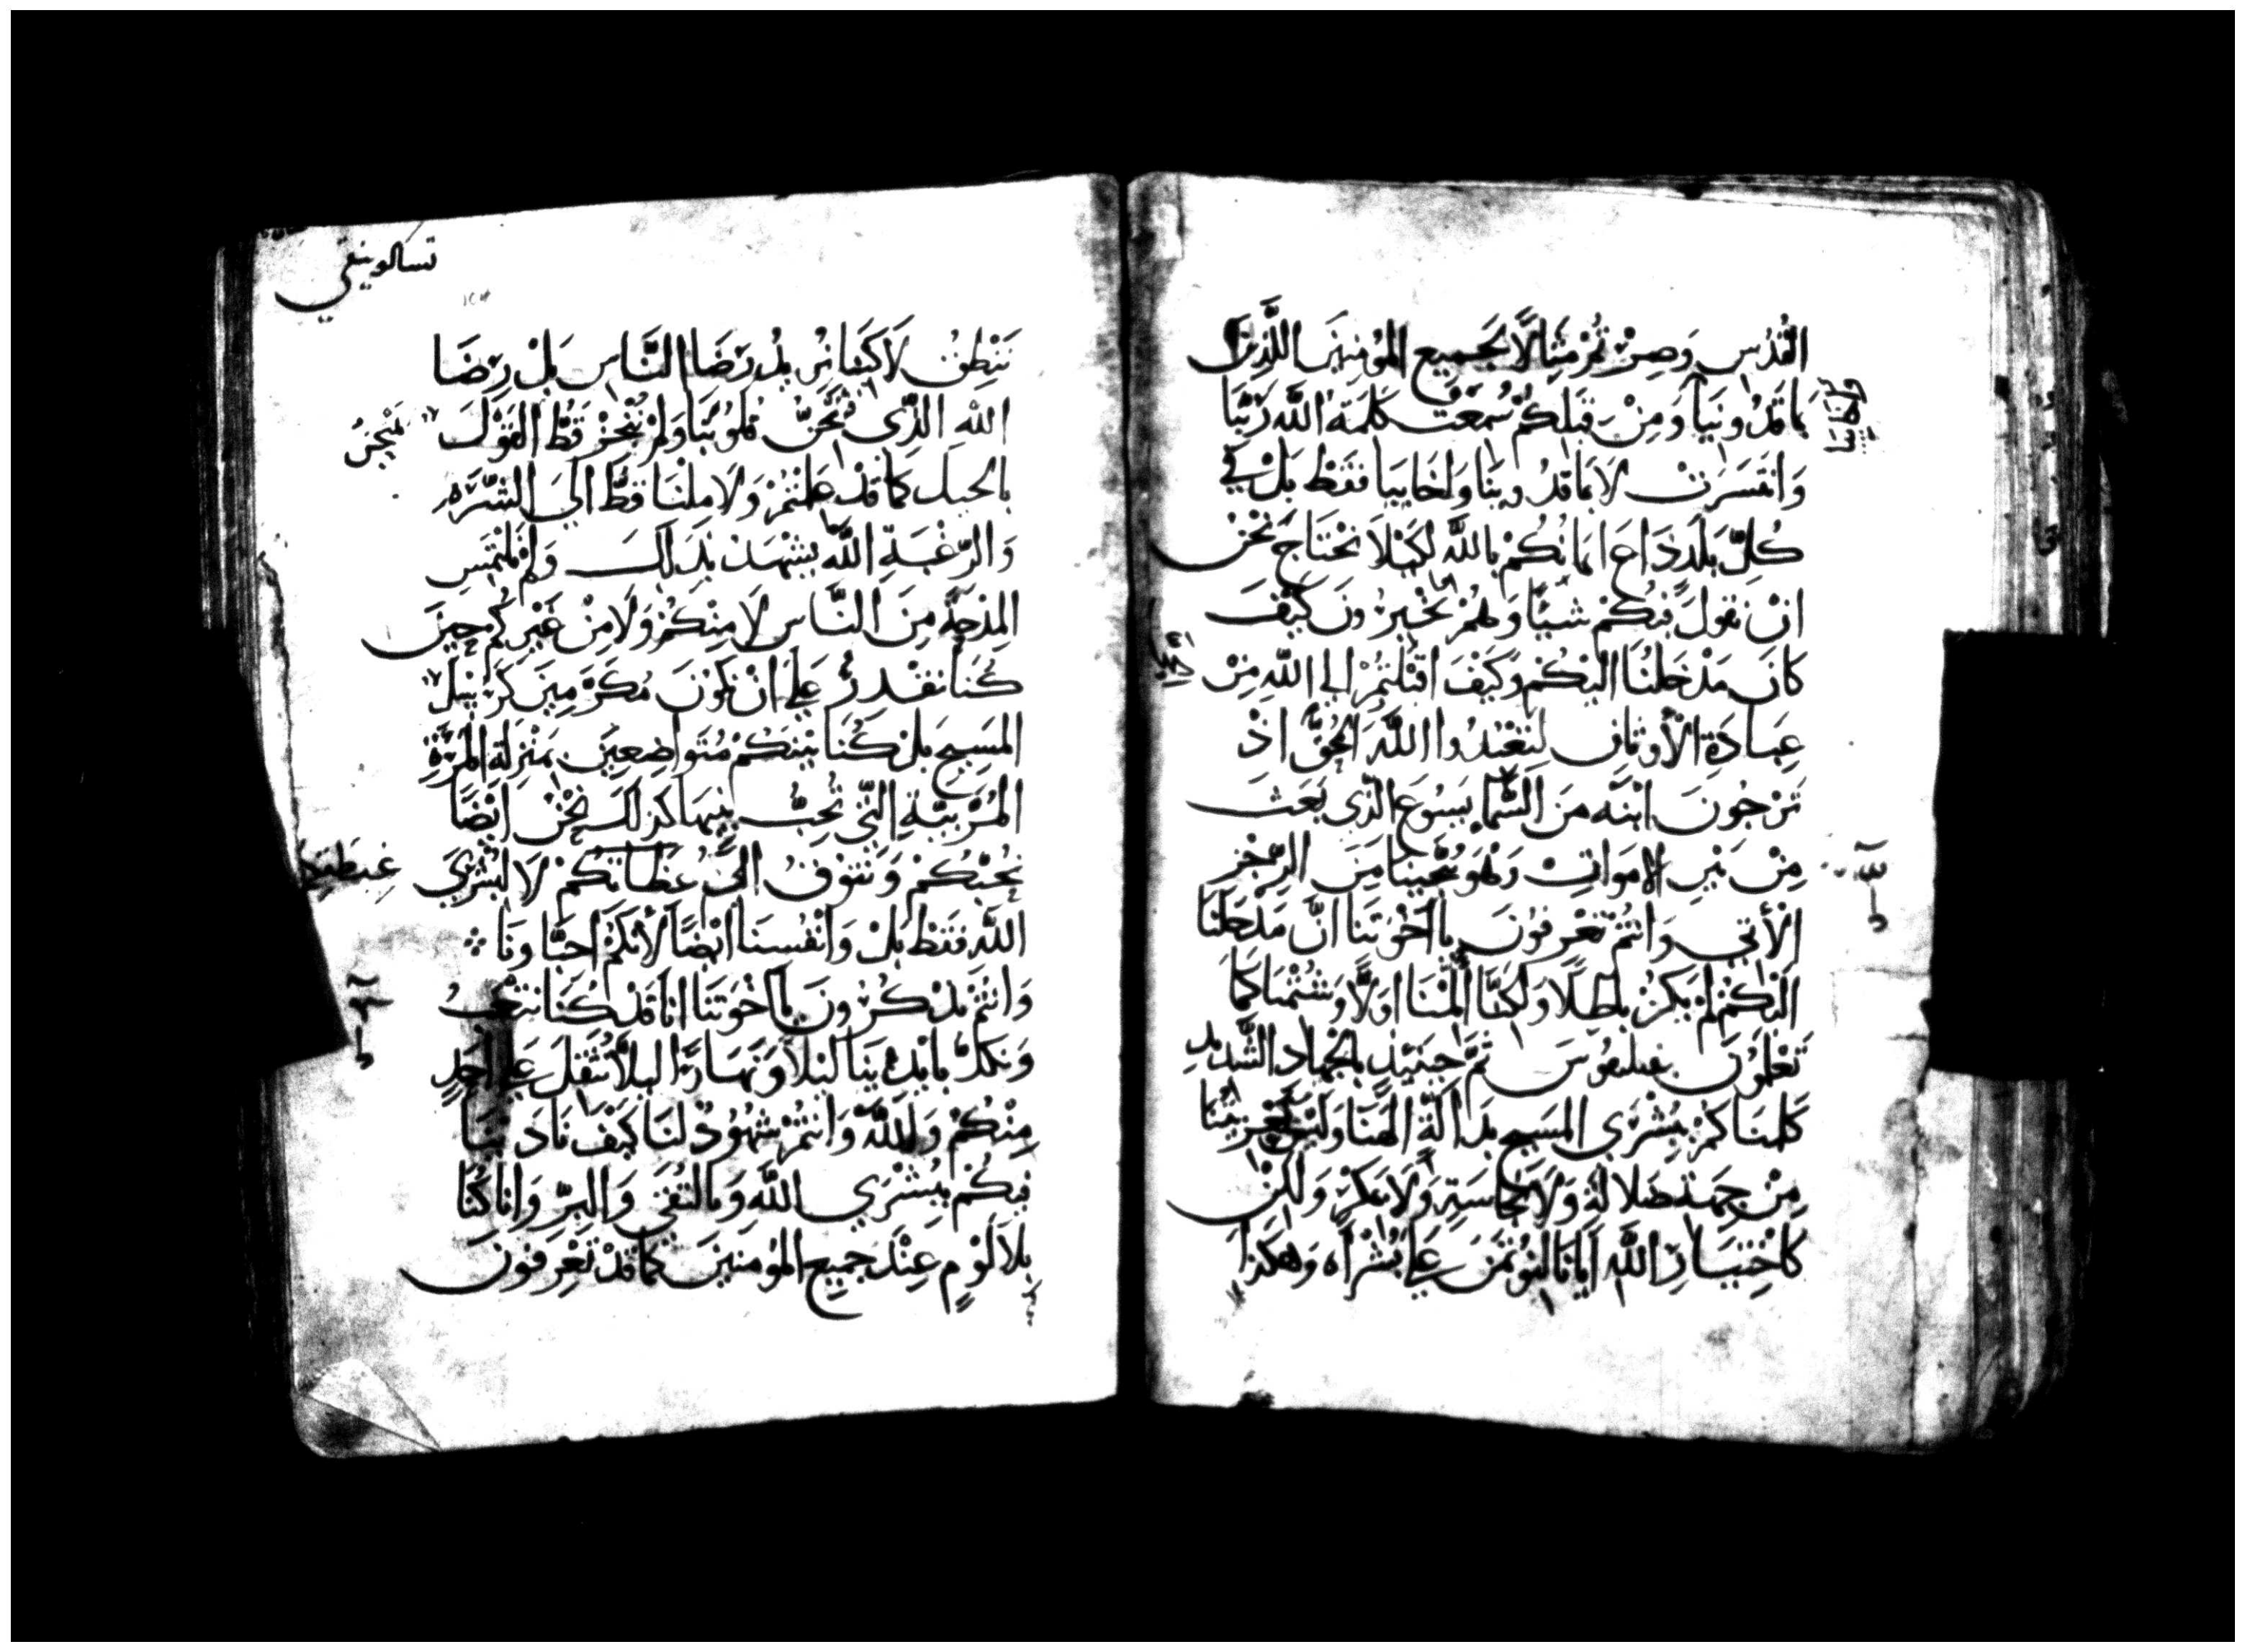 القُدُس وَصِرْتُمْ مِثَالًا لجَمِيع المُؤمِنِينَ اللَّذِينَ
بمَاقدُونيَا وَمِنْ قبَلِكُمْ سُمعَت كَلمَةُ اللَّه رَبِّنَا
وَانتَسَرَتْ لَا بمَاقدُونيَا وَاخَاييَا فَقَطْ بَلْ في
كُلِّ بَلَدٍ ذَاعَ ايمَانُكُمْ باللَّه لكَيْلَا نَحْتَاجَ نَحْنُ
انْ نقولَ فيكُمْ شَيْئًا وَهُمْ يُخْبِرُونَ كَيْفَ
كانَ مَدْخَلُنَا اليْكُم وَكيْفَ اقبَلتُمْ الي اللَّهِ مِنْ
عِبَادَةِ الأَوثَان لِتَعْبُدُوا اللَّهَ الحَقَّ اذْ
تَرْجُونَ ابْنَه مَن السَّمَا يسُوع الذِّي بَعَثَ
مِنْ بَيْنِ الامَوَاتِ وَهُوَ يُنْجِينَا مِنَ الرِّجْز
الأَتي وَانتُمْ تَعْرفُونَ يَا اخْوتَنَا انَّ مَدْخلنَا
اليْكُمْ لمْ يَكُنْ بَاطلًا وَلكنَّا أَلمْنَا اوَّلًا وَشُتمْنَا كمَا
تَعْلمُونَ بفيلبفُوسَ ثمَّ حِينَئِذٍ بالجهَاد الشَّدِيدِ
كَلمنَاكُمْ ببُشْرَي المَسيح بدَالّة الهنَا وَليْسَ تعْزيتُنَا
مِنْ جِهَة ضَلَالةٍ وَلَا نَجَاسَةٍ وَلَا بمكْرٍ وَلكنْ
كاختيَارِ اللَّه ايَانَا لنُؤتمَنَ عَلي بُشْرَاه وَهكذَا
تسالونيقي
نَنْطِقُ لَا كَانَّا نُريدُ رِضَا النَّاس بَلْ رِضَا
اللَّهِ الذِّي يَمْتَحِنُ قُلوُبَنَا وَلمْ نُنْجزْ قَطُّ القَوْلَ
بالحيل كمَا قدْ عَلمْتُمْ وَلَا ملْنَا قَطُّ الَي الشَّرَه
وَالرَّغْبَةِ اللَّه يشْهَد بذَلِكَ وَلمْ نَلْتَمسِ
المِدْحَةَ مِنَ النَّاس لَا مِنْكُمْ وَلَا مِنْ غَيْرِكُمْ حِينَ
كُنَا نقْدِرُ عَلي انْ نكونَ مُكَرَّمِينَ كَرُسُلِ
المَسيح بلْ كُنَا بَيْنكُمْ مُتَوَاضِعِينَ بمَنْزِلَةِ المَرأَةِ
المُرَبّيَةِ التّي تُحِبُّ بَنيهَا كذلكَ نحْنُ ايْضًا
نحُبُّكُمْ وَنتوقُ الَي عِظَاتكُمْ لَا ببُشْرَي
غِبطَتِكُم
اللَّه فَقَطْ بَلْ وَانْفُسنَا ايْضًا لأَنكُمْ احبَّاونَا
وَانتُمْ تَذْكُرُونَ يَا اخْوتَنَا انا قدْ كُنَا نتْعَبُ
وَنكدُّ بايْدِينَا ليْلًا وَنَهَارًا ليَلَّا نثْقلَ عَلي احَدٍ
مِنْكُمْ وَللَّه وَانتُمْ شهُودُ لنَا كَيْفَ نادَيْنَا
فيكُم ببُشْرَي اللَّه وَبالتُقَي وَالبِرّ وَانا كُنَّا
بلَا لَوْمٍ عِنْدَ جميع المُومنينَ كمَا قدْ تَعْرِفونَ